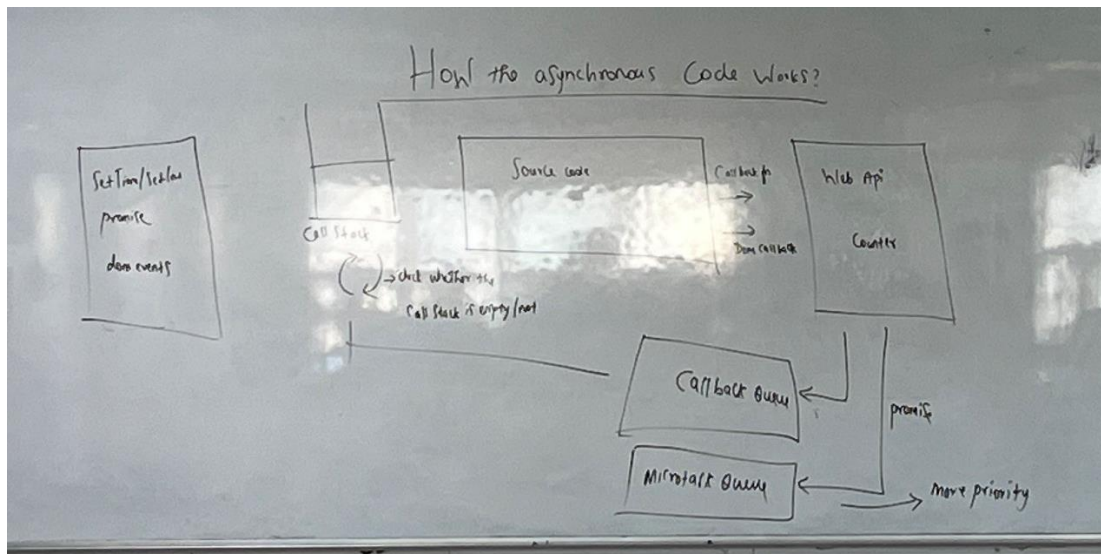 How the asynchronous Code Works?
promise
dom events
Call Stack
→ check whether the
Call Stack is empty/not
Source code
Callback fn
Dom Callback
Web Api
Counter
Callback Queue
promise
Microtask Queue
more priority